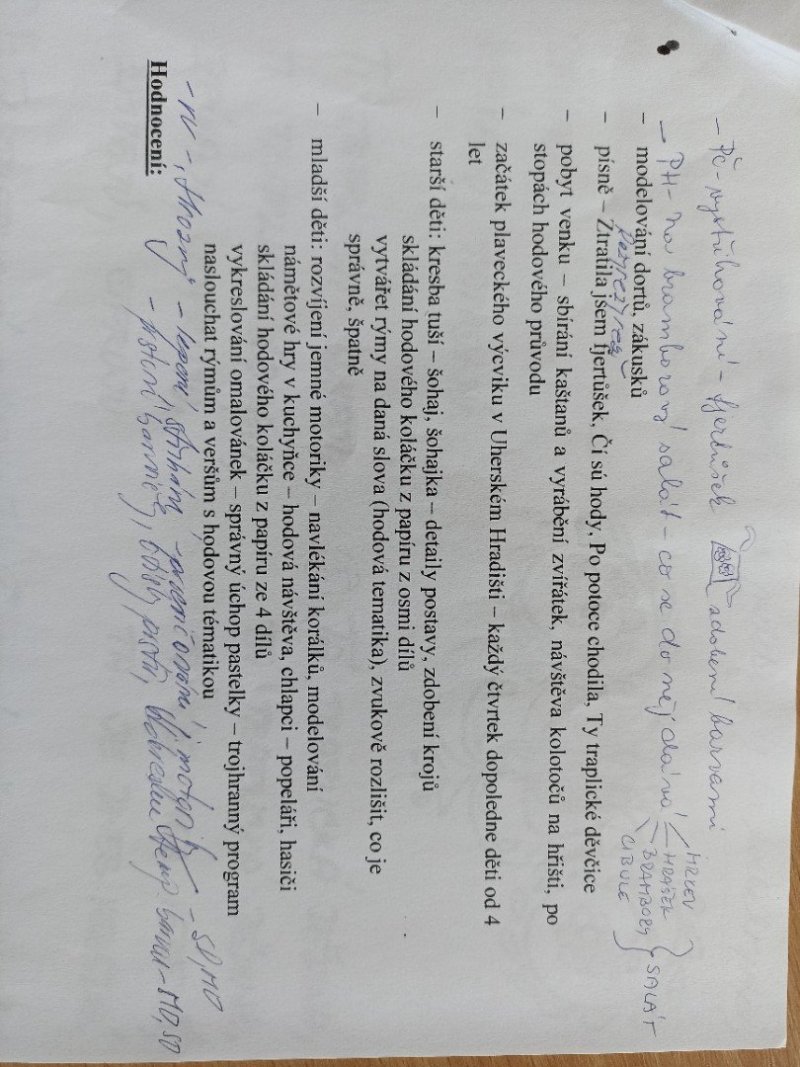 – PČ – vystřihování – fjertúšek zdobení barvami
– PH – na bramborový salát – co se do něj dává
MRKEV
HRÁŠEK
BRAMBORY
CIBULE
SALÁT
– modelování dortů, zákusků
– písně – Ztratila jsem fjertůšek, Čí sú hody, Po potoce chodila, Ty traplické děvčice
– pobyt venku – sbírání kaštanů a vyrábění zvířátek, návštěva kolotočů na hřišti, po
stopách hodového průvodu
– začátek plaveckého výcviku v Uherském Hradišti – každý čtvrtek dopoledne děti od 4
let
– starší děti: kresba tuší – šohaj, šohajka – detaily postavy, zdobení krojů
skládání hodového koláčku z papíru z osmi dílů
vytvářet rýmy na daná slova (hodová tematika), zvukově rozlišit, co je
správně, špatně
– mladší děti: rozvíjení jemné motoriky – navlékání korálků, modelování
námětové hry v kuchyňce – hodová návštěva, chlapci – popeláři, hasiči
skládání hodového koláčku z papíru ze 4 dílů
vykreslování omalovánek – správný úchop pastelky – trojhranný program
naslouchat rýmům a veršům s hodovou tématikou
– rv – hrozny – lepení, – SD, MD
– prstové barvičky, – MD, SD
Hodnocení: